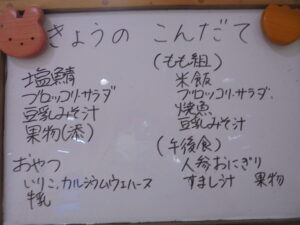 きょうの こんだて
塩鯖
ブロッコリーサラダ
豆乳みそ汁
果物(添)
おやつ
いりこ、カルシウムウエハース
牛乳
(もも組)
米飯
ブロッコリーサラダ
焼魚
豆乳みそ汁
(午後食)
人参おにぎり
すまし汁 果物